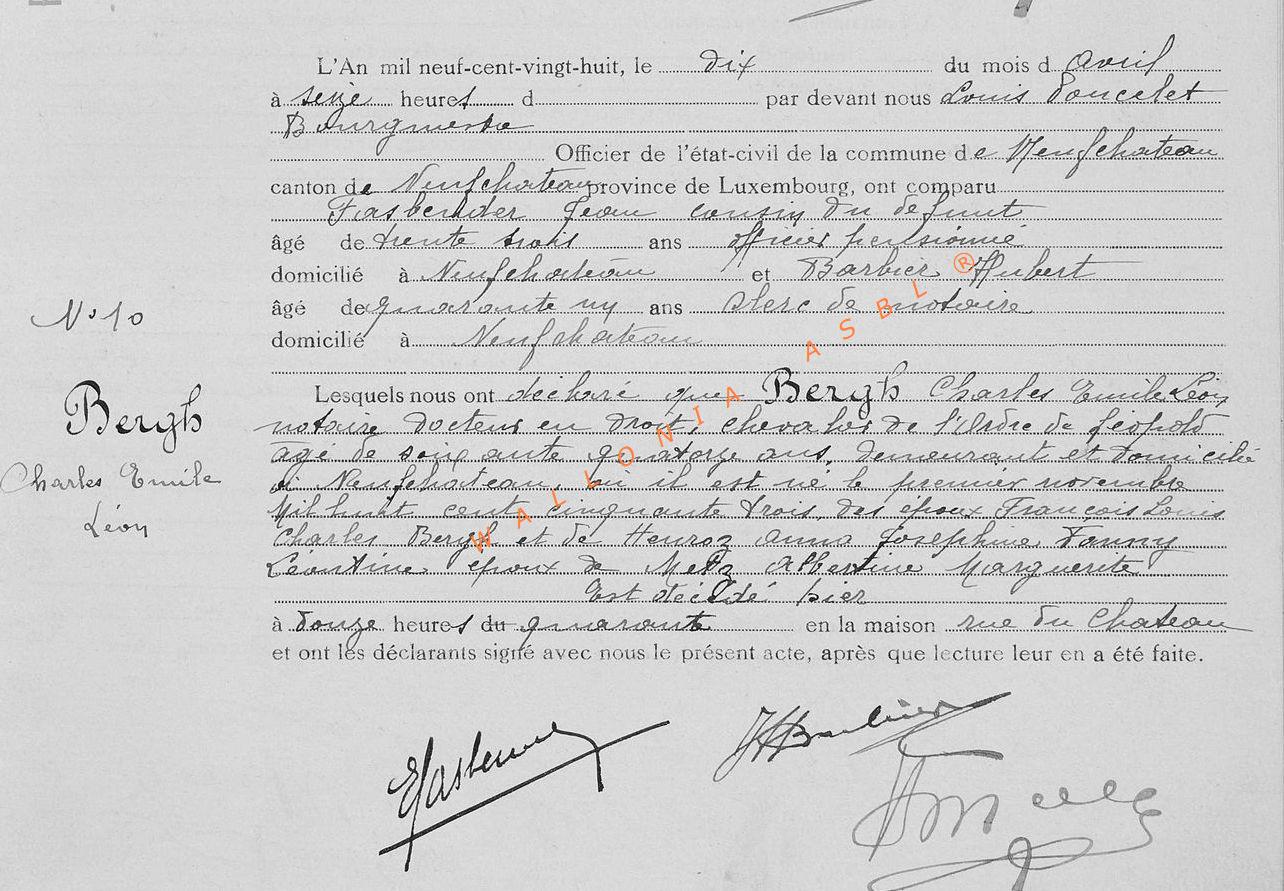 L'An mil neuf-cent-vingt-huit, le dix du mois d avril
à seize heures d par devant nous Louis Poncelet
Bourgmestre
Officier de l'état-civil de la commune de Neufchateau
canton de Neufchateau province de Luxembourg, ont comparu
Fasbender Jean cousin du défunt
âgé de trente trois ans officier pensionné
domicilié à Neufchateau et Barbier Hubert
N° 10
âgé de quarante un ans clerc de notaire
domicilié à Neufchateau
Bergh
Charles Emile
Léon
Lesquels nous ont déclaré que Bergh Charles Emile Léon
notaire docteur en droit, chevalier de l'Ordre de Léopold
agé de soixante quatorze ans, demeurant et domicilié
à Neufchateau, où il est né le premier novembre
Mil huit cent cinquante trois, des époux François Louis
Charles Bergh et de Henroz Anna Joséphine Fanny
Léontine, époux de Metz Albertine Marguerite
Est décédé hier
à douze heures du quarante en la maison rue du Chateau
et ont les déclarants signé avec nous le présent acte, après que lecture leur en a été faite.
WALLONIA ASBL ®
HBarbier